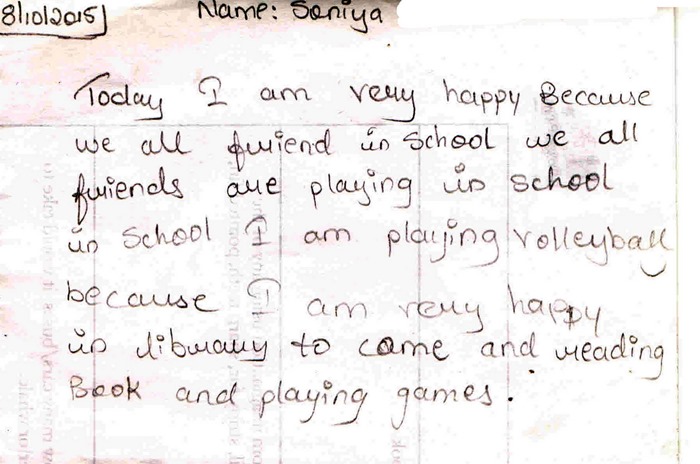 8/10/2015 Name: Soniya
Today I am very happy Because
we all friend in School we all
friends are playing in school
in School I am playing volleyball
because I am very happy
in library to came and reading
Book and playing games.